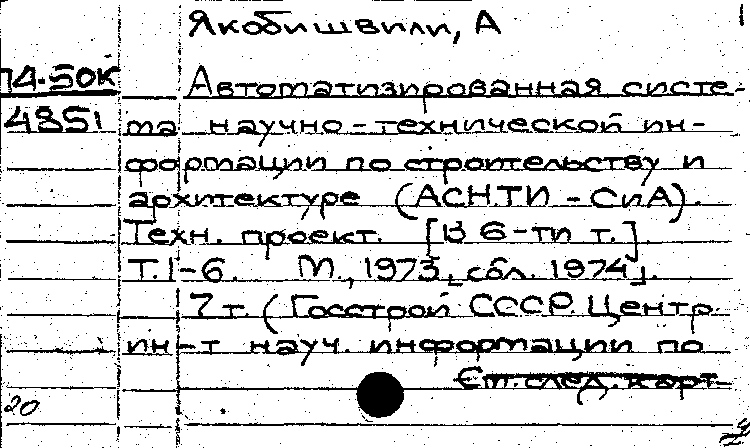 Якобишвили, А
74-50К Автоматизированная систе-
4851 ма научно-технической ин-
формации по строительству и
архитектуре (АСНТИ - СиА).
Техн. проект. [В 6-ти т.].
Т. 1-6. М., 1973, обл. 1974.
7 т. (Госстрой СССР. Центр.
ин-т науч. информации по
См. след. карт.
20